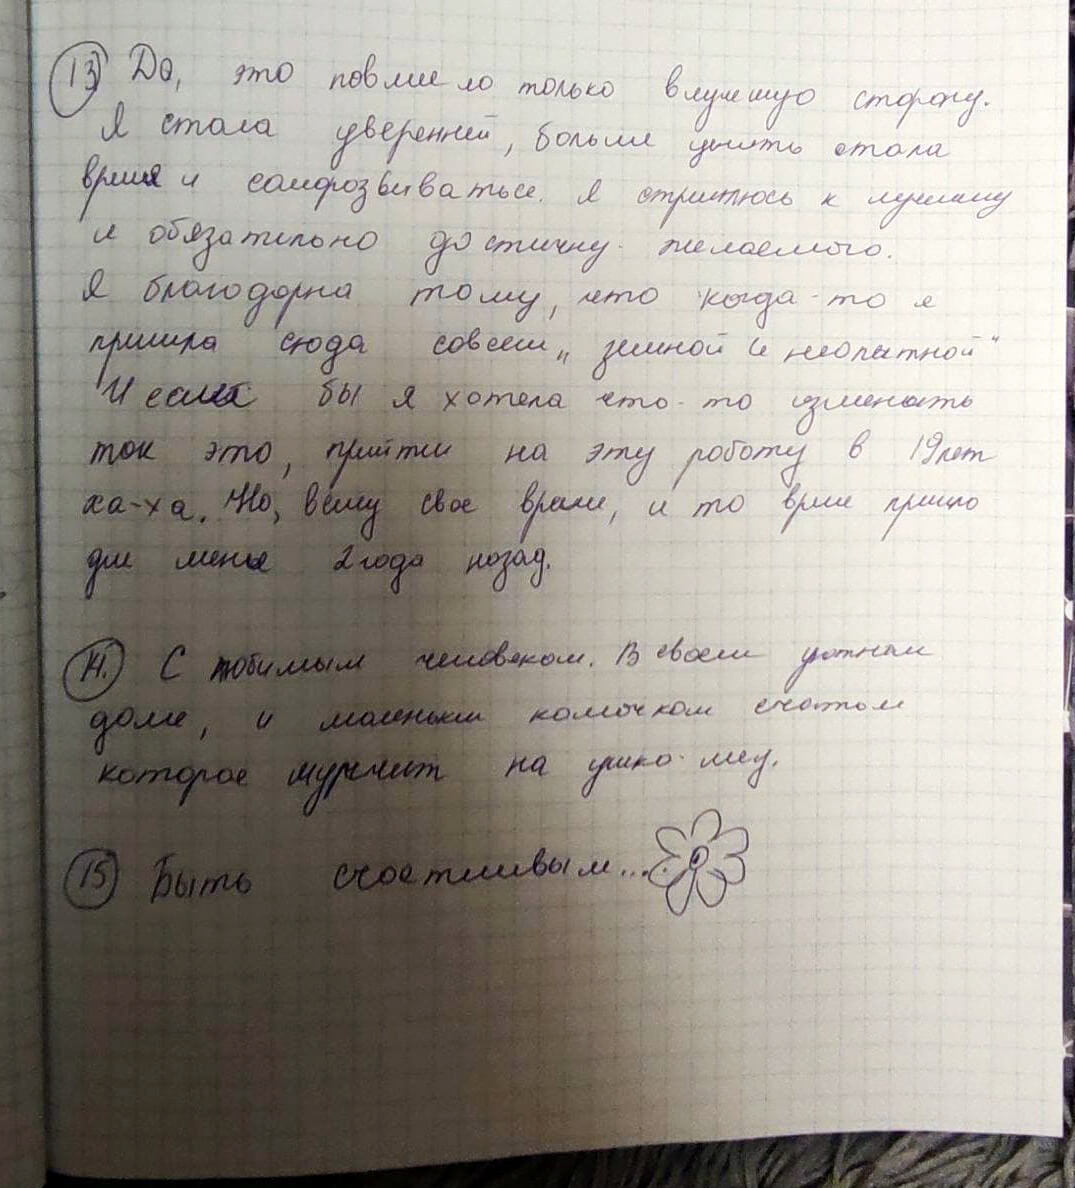 13) Да, это повлияло только в лучшую сторону.
Я стала уверенней, больше ценить стала
время и саморозвиваться. Я стримлюсь к лучшему
и обязательно достигну желаемого.
Я благодарна тому, что когда-то я
пришла сюда совсем „ зеленой и неопытной"
И если бы я хотела что-то изменить
так это, прийти на эту работу в 19 лет
ха-ха. Но, всему свое время, и то время пришло
для меня 2 года назад.
14. С любимым человеком. В своем уютном
доме, и маленьким комочком счастья
которое мурчит на ушко мяу.
15) Быть счастливым...